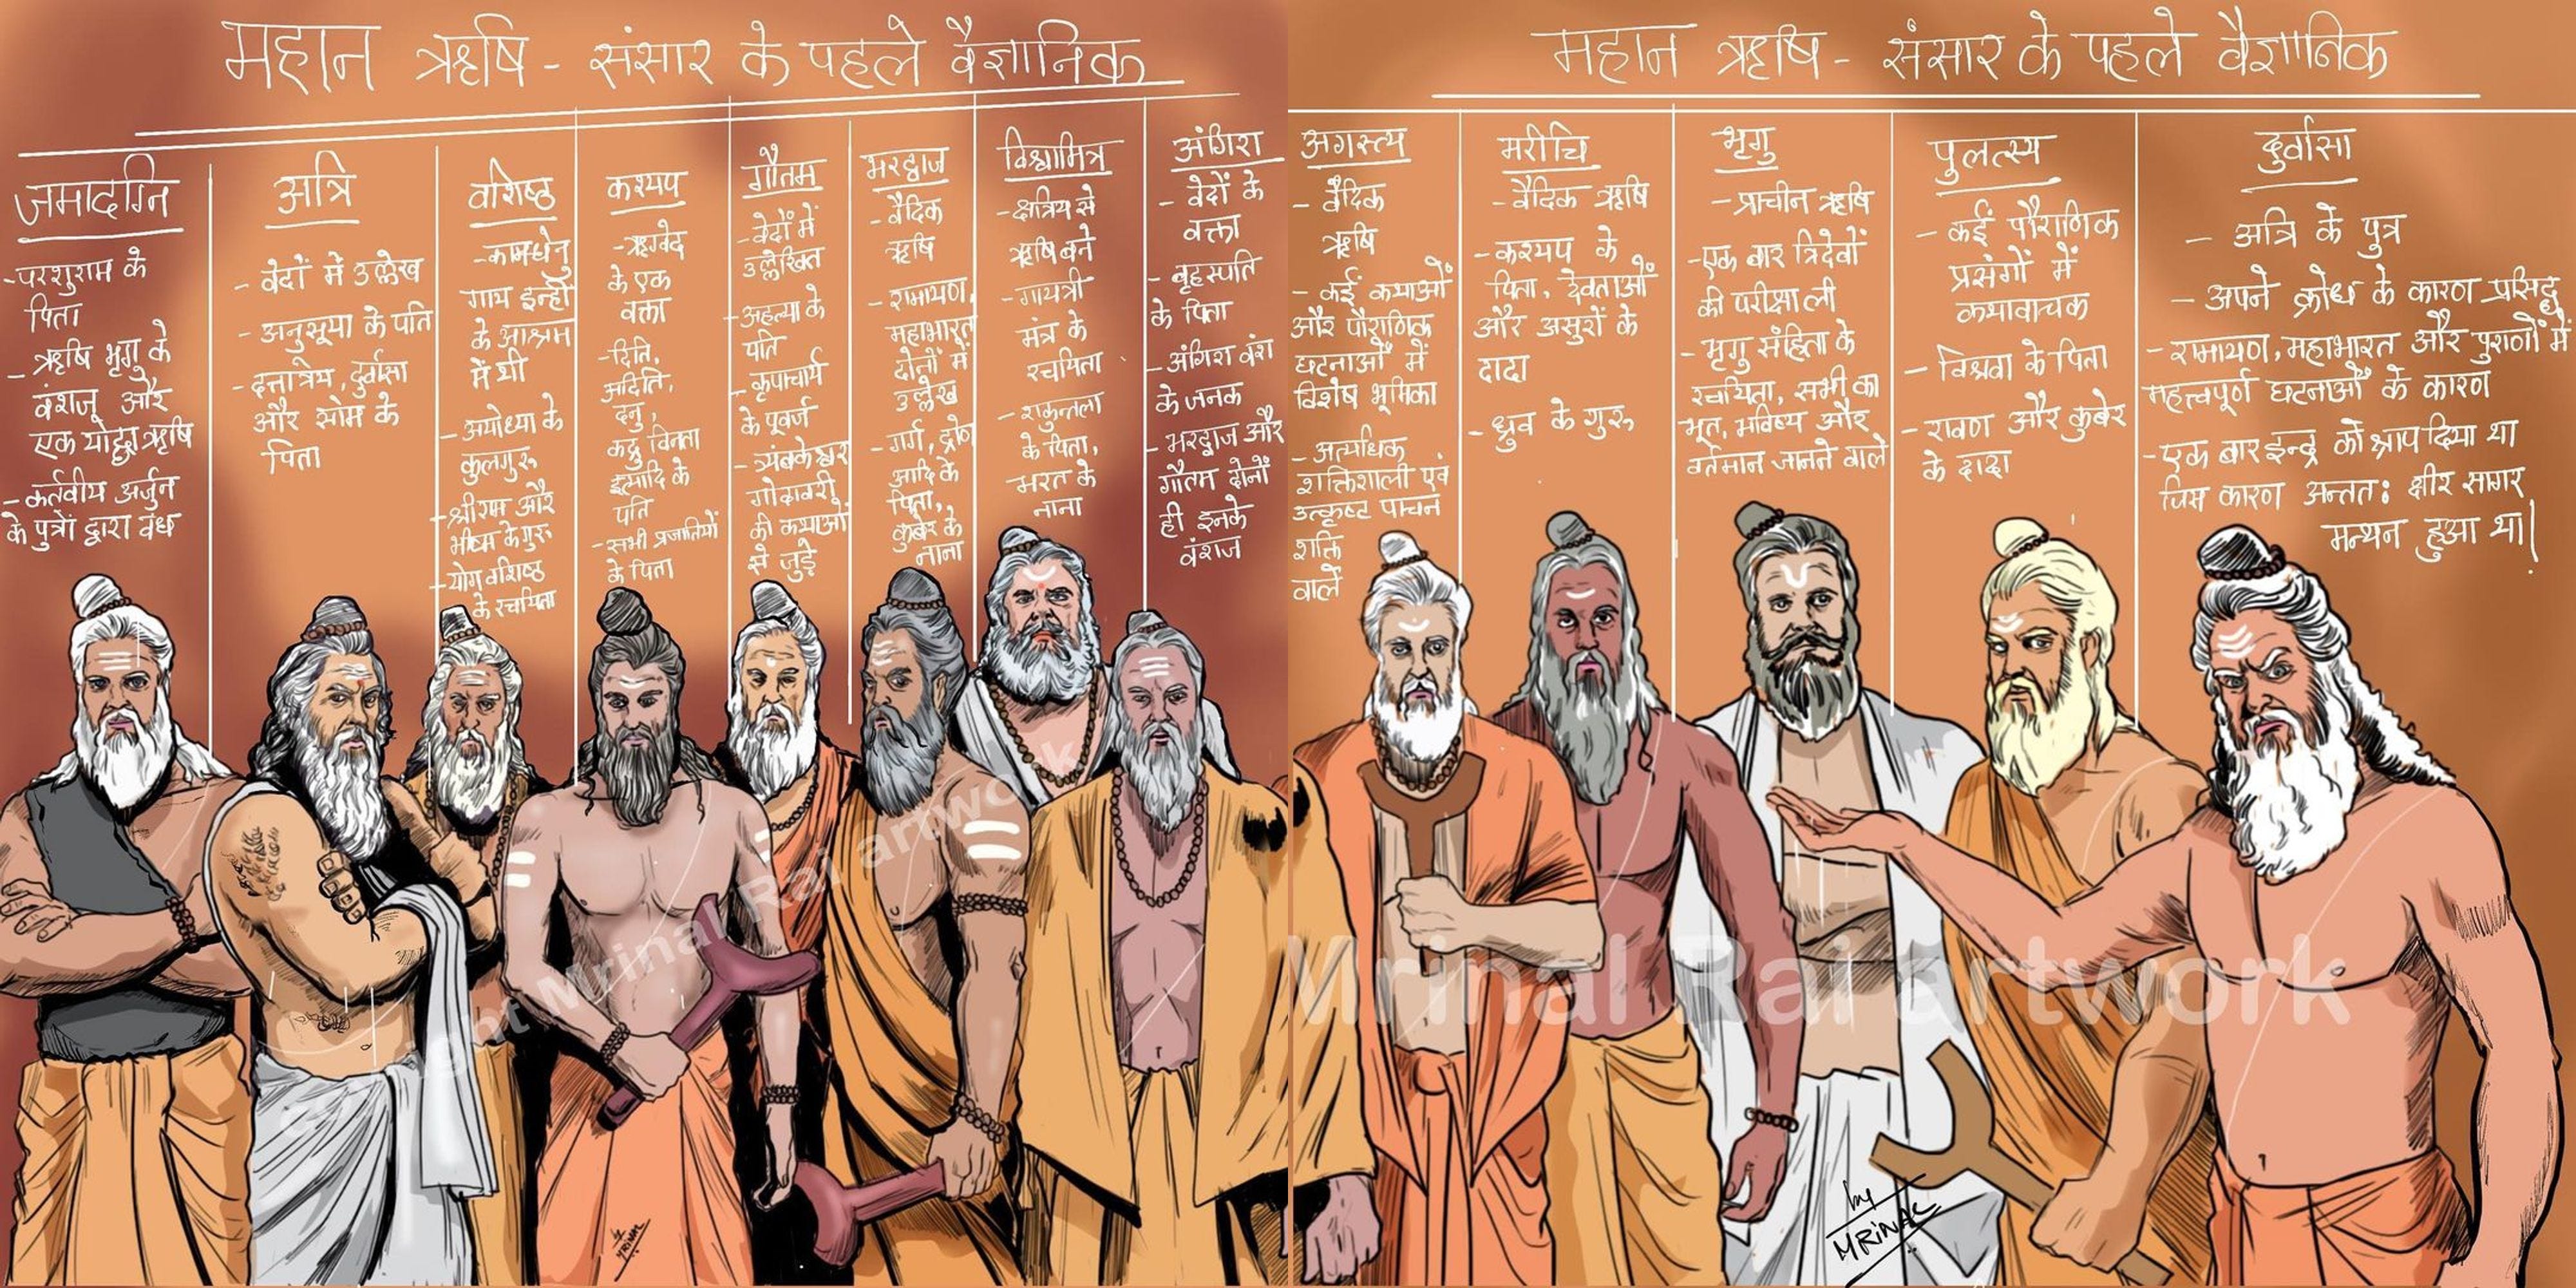 महान ऋषि - संसार के पहले वैज्ञानिक
जमादग्नि
-परशुराम के
पिता
- ऋषि भृगु के
वंशज और
एक योद्धा ऋषि
- कर्तवीय अर्जुन
के पुत्रों द्वारा वध
अत्रि
- वेदों में उल्लेख
- अनुसूया के पति
- दत्तात्रेय, दुर्वासा
और सोम के
पिता
वशिष्ठ
-कामधेनु
गाय इन्हीं
के आश्रम
में थी
- अयोध्या के
कुलगुरु
- श्रीराम और
भीष्म के गुरु
- योग वशिष्ठ
के रचयिता
कश्यप
-ऋग्वेद
के एक
वक्ता
-दिति,
अदिति,
दनु,
कद्रु विनता
इत्यादि के
पति
-सभी प्रजातियों
के पिता
गौतम
-वेदों में
उल्लेखित
-अहल्या के
पति
- कृपाचार्य
के पूर्वज
- त्र्यंबकेश्वर
गोदावरी
की कथाओं
से जुड़े
भरद्वाज
- वैदिक
ऋषि
- रामायण,
महाभारत
दोनों में
उल्लेख
- गर्ग, द्रोण
आदि के
पिता,
कुबेर के
नाना
विश्वामित्र
-क्षत्रिय से
ऋषि बने
- गायत्री
मंत्र के
रचयिता
- शकुन्तला
के पिता,
भरत के
नाना
अंगिरा
- वेदों के
वक्ता
- बृहस्पति
के पिता
- अंगिरा वंश
के जनक
- भरद्वाज और
गौतम दोनों
ही इनके
वंशज
got Mrinal Rai artwork
by
MRINAL
महान ऋषि - संसार के पहले वैज्ञानिक
अगस्त्य
- वैदिक
ऋषि
- कई कथाओं
और पौराणिक
घटनाओं में
विशेष भूमिका
- अत्यधिक
शक्तिशाली एवं
उत्कृष्ट पाचन
शक्ति
वाले
मरीचि
- वैदिक ऋषि
- कश्यप के
पिता, देवताओं
और असुरों के
दादा
- ध्रुव के गुरु
भृगु
- प्राचीन ऋषि
-एक बार त्रिदेवों
की परीक्षा ली
- भृगु संहिता के
रचयिता, सभी का
भूत, भविष्य और
वर्तमान जानने वाले
पुलत्स्य
- कई पौराणिक
प्रसंगों में
कथावाचक
- विश्रवा के पिता
- रावण और कुबेर
के दादा
दुर्वासा
- अत्रि के पुत्र
- अपने क्रोध के कारण प्रसिद्ध
- रामायण, महाभारत और पुराणों में
महत्त्वपूर्ण घटनाओं के कारण
-एक बार इन्द्र को श्राप दिया था
जिस कारण अन्ततः क्षीर सागर
मन्थन हुआ था|
Mrinal Rai artwork
by
MRINAL